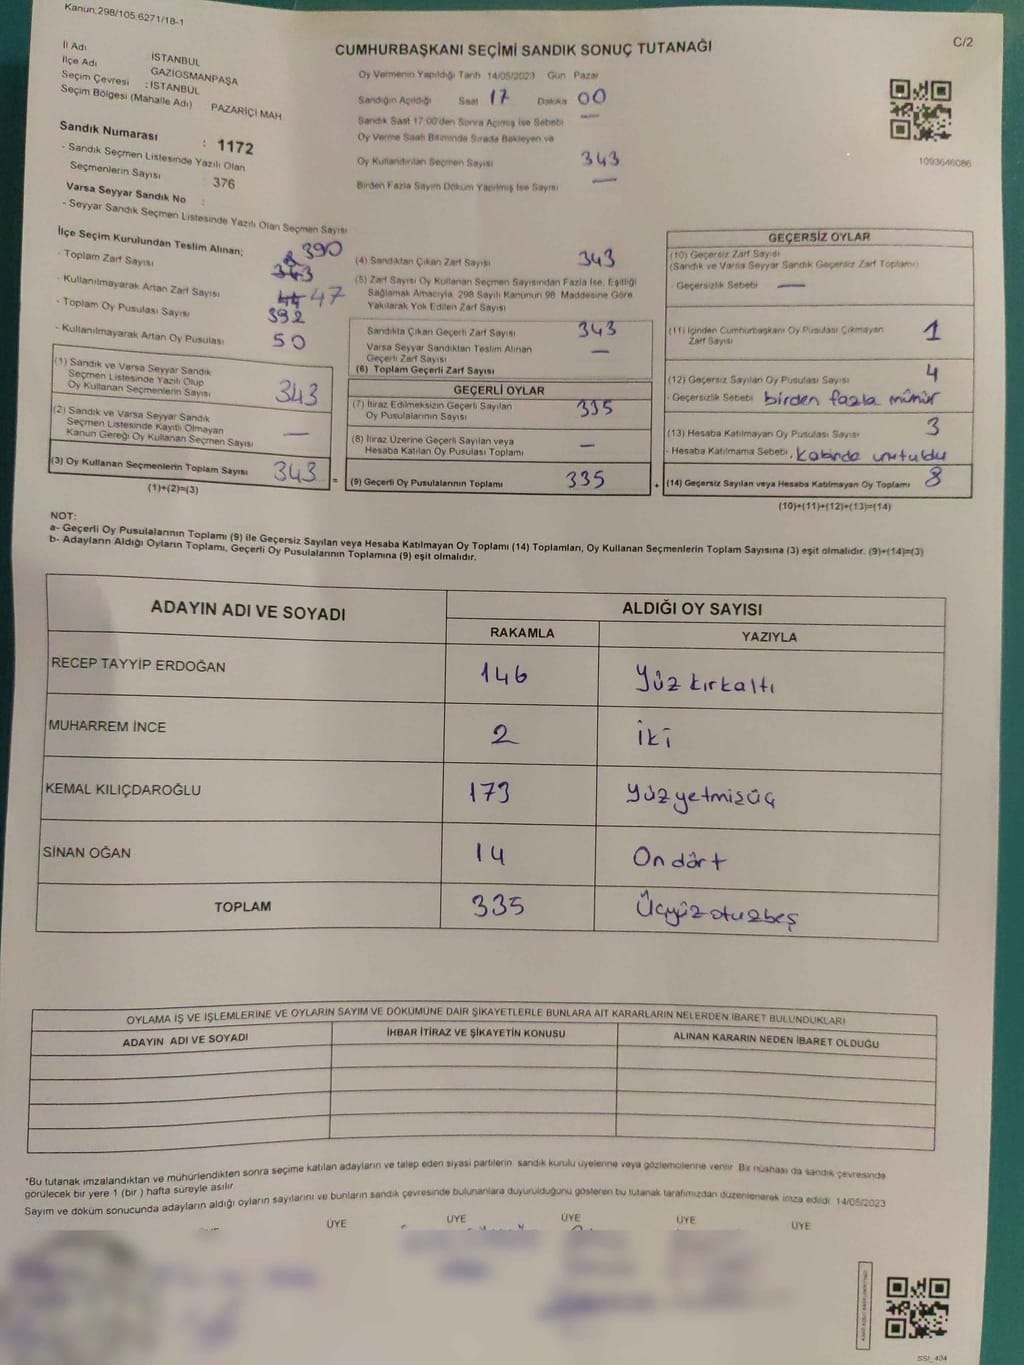 Kanun:298/105,6271/18-1
C/2
CUMHURBAŞKANI SEÇİMİ SANDIK SONUÇ TUTANAĞI
İl Adı İSTANBUL
İlçe Adı GAZİOSMANPAŞA
Seçim Çevresi : İSTANBUL
Seçim Bölgesi (Mahalle Adı) PAZARİÇİ MAH
Sandık Numarası : 1172
- Sandık Seçmen Listesinde Yazılı Olan
Seçmenlerin Sayısı : 376
Varsa Seyyar Sandık No :
- Seyyar Sandık Seçmen Listesinde Yazılı Olan Seçmen Sayısı
Oy Vermenin Yapıldığı Tarih 14/05/2023 Gün Pazar
Sandığın Açıldığı Saat 17 Dakika 00
Sandık Saat 17.00'den Sonra Açmış İse Sebebi —
Oy Verme Saati Bitiminde Sırada Bekleyen ve
Oy Kullandırılan Seçmen Sayısı 343
Birden Fazla Sayım Döküm Yapılmış İse Sayısı —
1093646086
İlçe Seçim Kurulundan Teslim Alınan;
- Toplam Zarf Sayısı 343 390
- Kullanılmayarak Artan Zarf Sayısı 44 47
- Toplam Oy Pusulası Sayısı 392
- Kullanılmayarak Artan Oy Pusulası 50
(1) Sandık ve Varsa Seyyar Sandık
Seçmen Listesinde Yazılı Olup
Oy Kullanan Seçmenlerin Sayısı 343
(2) Sandık ve Varsa Seyyar Sandık
Seçmen Listesinde Kayıtlı Olmayan
Kanun Gereği Oy Kullanan Seçmen Sayısı —
(3) Oy Kullanan Seçmenlerin Toplam Sayısı 343 =
(1)+(2)=(3)
(4) Sandıktan Çıkan Zarf Sayısı 343
(5) Zarf Sayısı Oy Kullanan Seçmen Sayısından Fazla İse, Eşitliği
Sağlamak Amacıyla, 298 Sayılı Kanunun 98. Maddesine Göre
Yakılarak Yok Edilen Zarf Sayısı
Sandıkta Çıkan Geçerli Zarf Sayısı 343
Varsa Seyyar Sandıktan Teslim Alınan
Geçerli Zarf Sayısı —
(6) Toplam Geçerli Zarf Sayısı
GEÇERLİ OYLAR
(7) İtiraz Edilmeksizin Geçerli Sayılan
Oy Pusulalarının Sayısı 335
(8) İtiraz Üzerine Geçerli Sayılan veya
Hesaba Katılan Oy Pusulası Toplamı —
(9) Geçerli Oy Pusulalarının Toplamı 335 +
GEÇERSİZ OYLAR
(10) Geçersiz Zarf Sayısı
(Sandık ve Varsa Seyyar Sandık Geçersiz Zarf Toplamı)
- Geçersizlik Sebebi —
(11) İçinden Cumhurbaşkanı Oy Pusulası Çıkmayan
Zarf Sayısı 1
(12) Geçersiz Sayılan Oy Pusulası Sayısı 4
- Geçersizlik Sebebi birden fazla mühür
(13) Hesaba Katılmayan Oy Pusulası Sayısı 3
- Hesaba Katılmama Sebebi. Kabinde unutuldu
(14) Geçersiz Sayılan veya Hesaba Katılmayan Oy Toplamı 8
(10)+(11)+(12)+(13)=(14)
NOT:
a- Geçerli Oy Pusulalarının Toplamı (9) ile Geçersiz Sayılan veya Hesaba Katılmayan Oy Toplamı (14) Toplamları, Oy Kullanan Seçmenlerin Toplam Sayısına (3) eşit olmalıdır. (9)+(14)=(3)
b- Adayların Aldığı Oyların Toplamı, Geçerli Oy Pusulalarının Toplamına (9) eşit olmalıdır.
ADAYIN ADI VE SOYADI
ALDIĞI OY SAYISI
RAKAMLA YAZIYLA
RECEP TAYYİP ERDOĞAN 146 Yüz kırkaltı
MUHARREM İNCE 2 İki
KEMAL KILIÇDAROĞLU 173 Yüz yetmişüç
SİNAN OĞAN 14 On dört
TOPLAM 335 Üçyüz otuzbeş
OYLAMA İŞ VE İŞLEMLERİNE VE OYLARIN SAYIM VE DÖKÜMÜNE DAİR ŞİKAYETLERLE BUNLARA AİT KARARLARIN NELERDEN İBARET BULUNDUKLARI
ADAYIN ADI VE SOYADI İHBAR İTİRAZ VE ŞİKAYETİN KONUSU ALINAN KARARIN NEDEN İBARET OLDUĞU
*Bu tutanak imzalandıktan ve mühürlendikten sonra seçime katılan adayların ve talep eden siyasi partilerin sandık kurulu üyelerine veya gözlemcilerine verilir. Bir nüshası da sandık çevresinde
görülecek bir yere 1 (bir) hafta süreyle asılır.
Sayım ve döküm sonucunda adayların aldığı oyların sayılarını ve bunların sandık çevresinde bulunanlara duyurulduğunu gösteren bu tutanak tarafımızdan düzenlenerek imza edildi. 14/05/2023
ÜYE ÜYE ÜYE ÜYE ÜYE
SSI_404